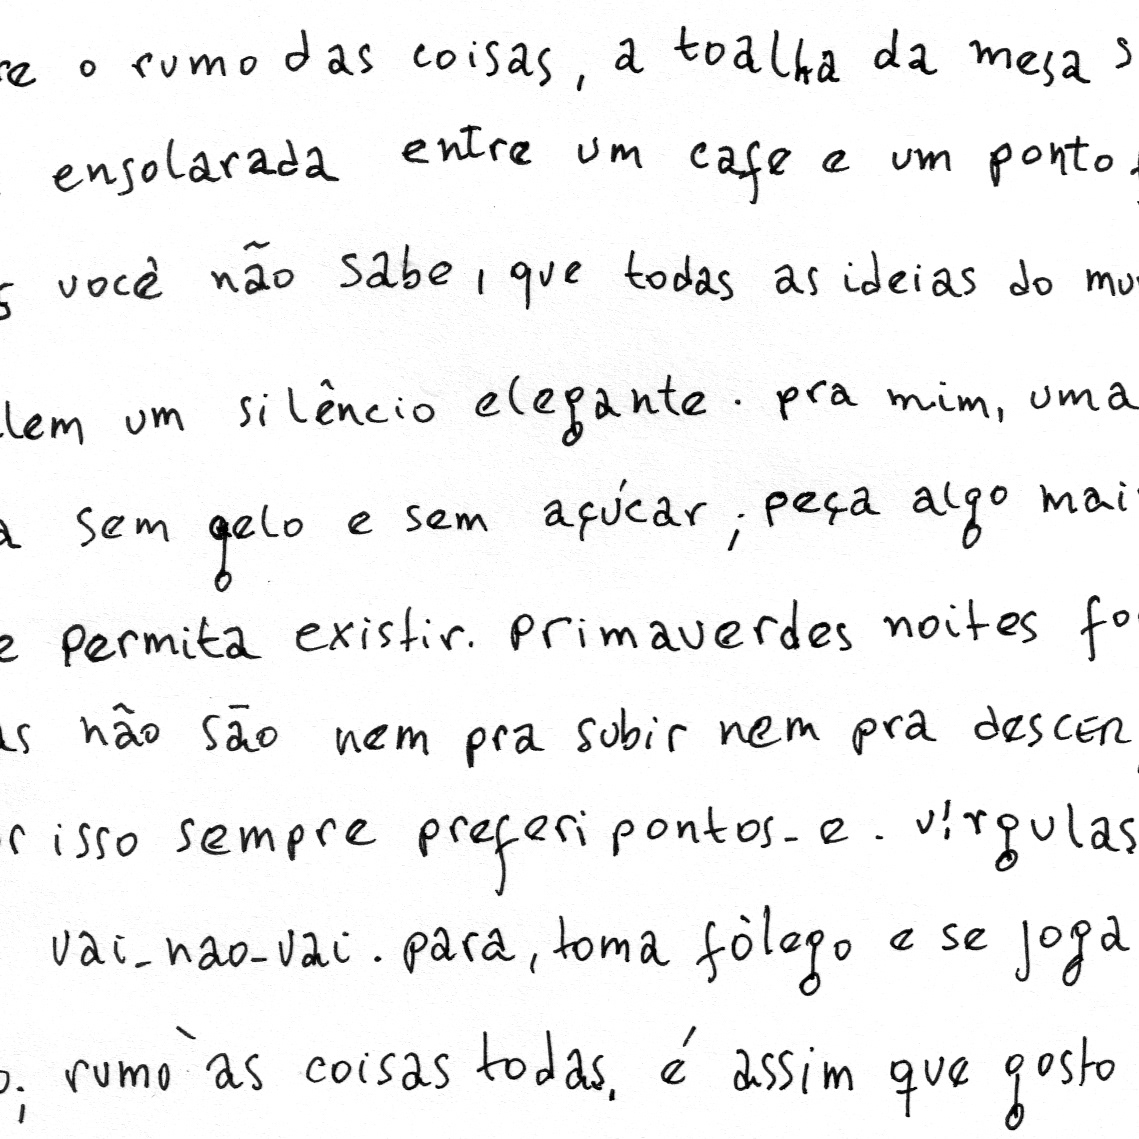 re o rumo das coisas, a toalha da mesa s
ensolarada entre um cafe e um ponto
s você não sabe, que todas as ideias do mu
lem um silêncio elegante. pra mim, uma
a sem gelo e sem açúcar; peça algo mai
e permita existir. primaverdes noites fo
as não são nem pra subir nem pra descer,
r isso sempre preferi pontos-e. vírgulas
vai-nao-vai. para, toma fôlego e se joga
o; rumo às coisas todas. é assim que gosto